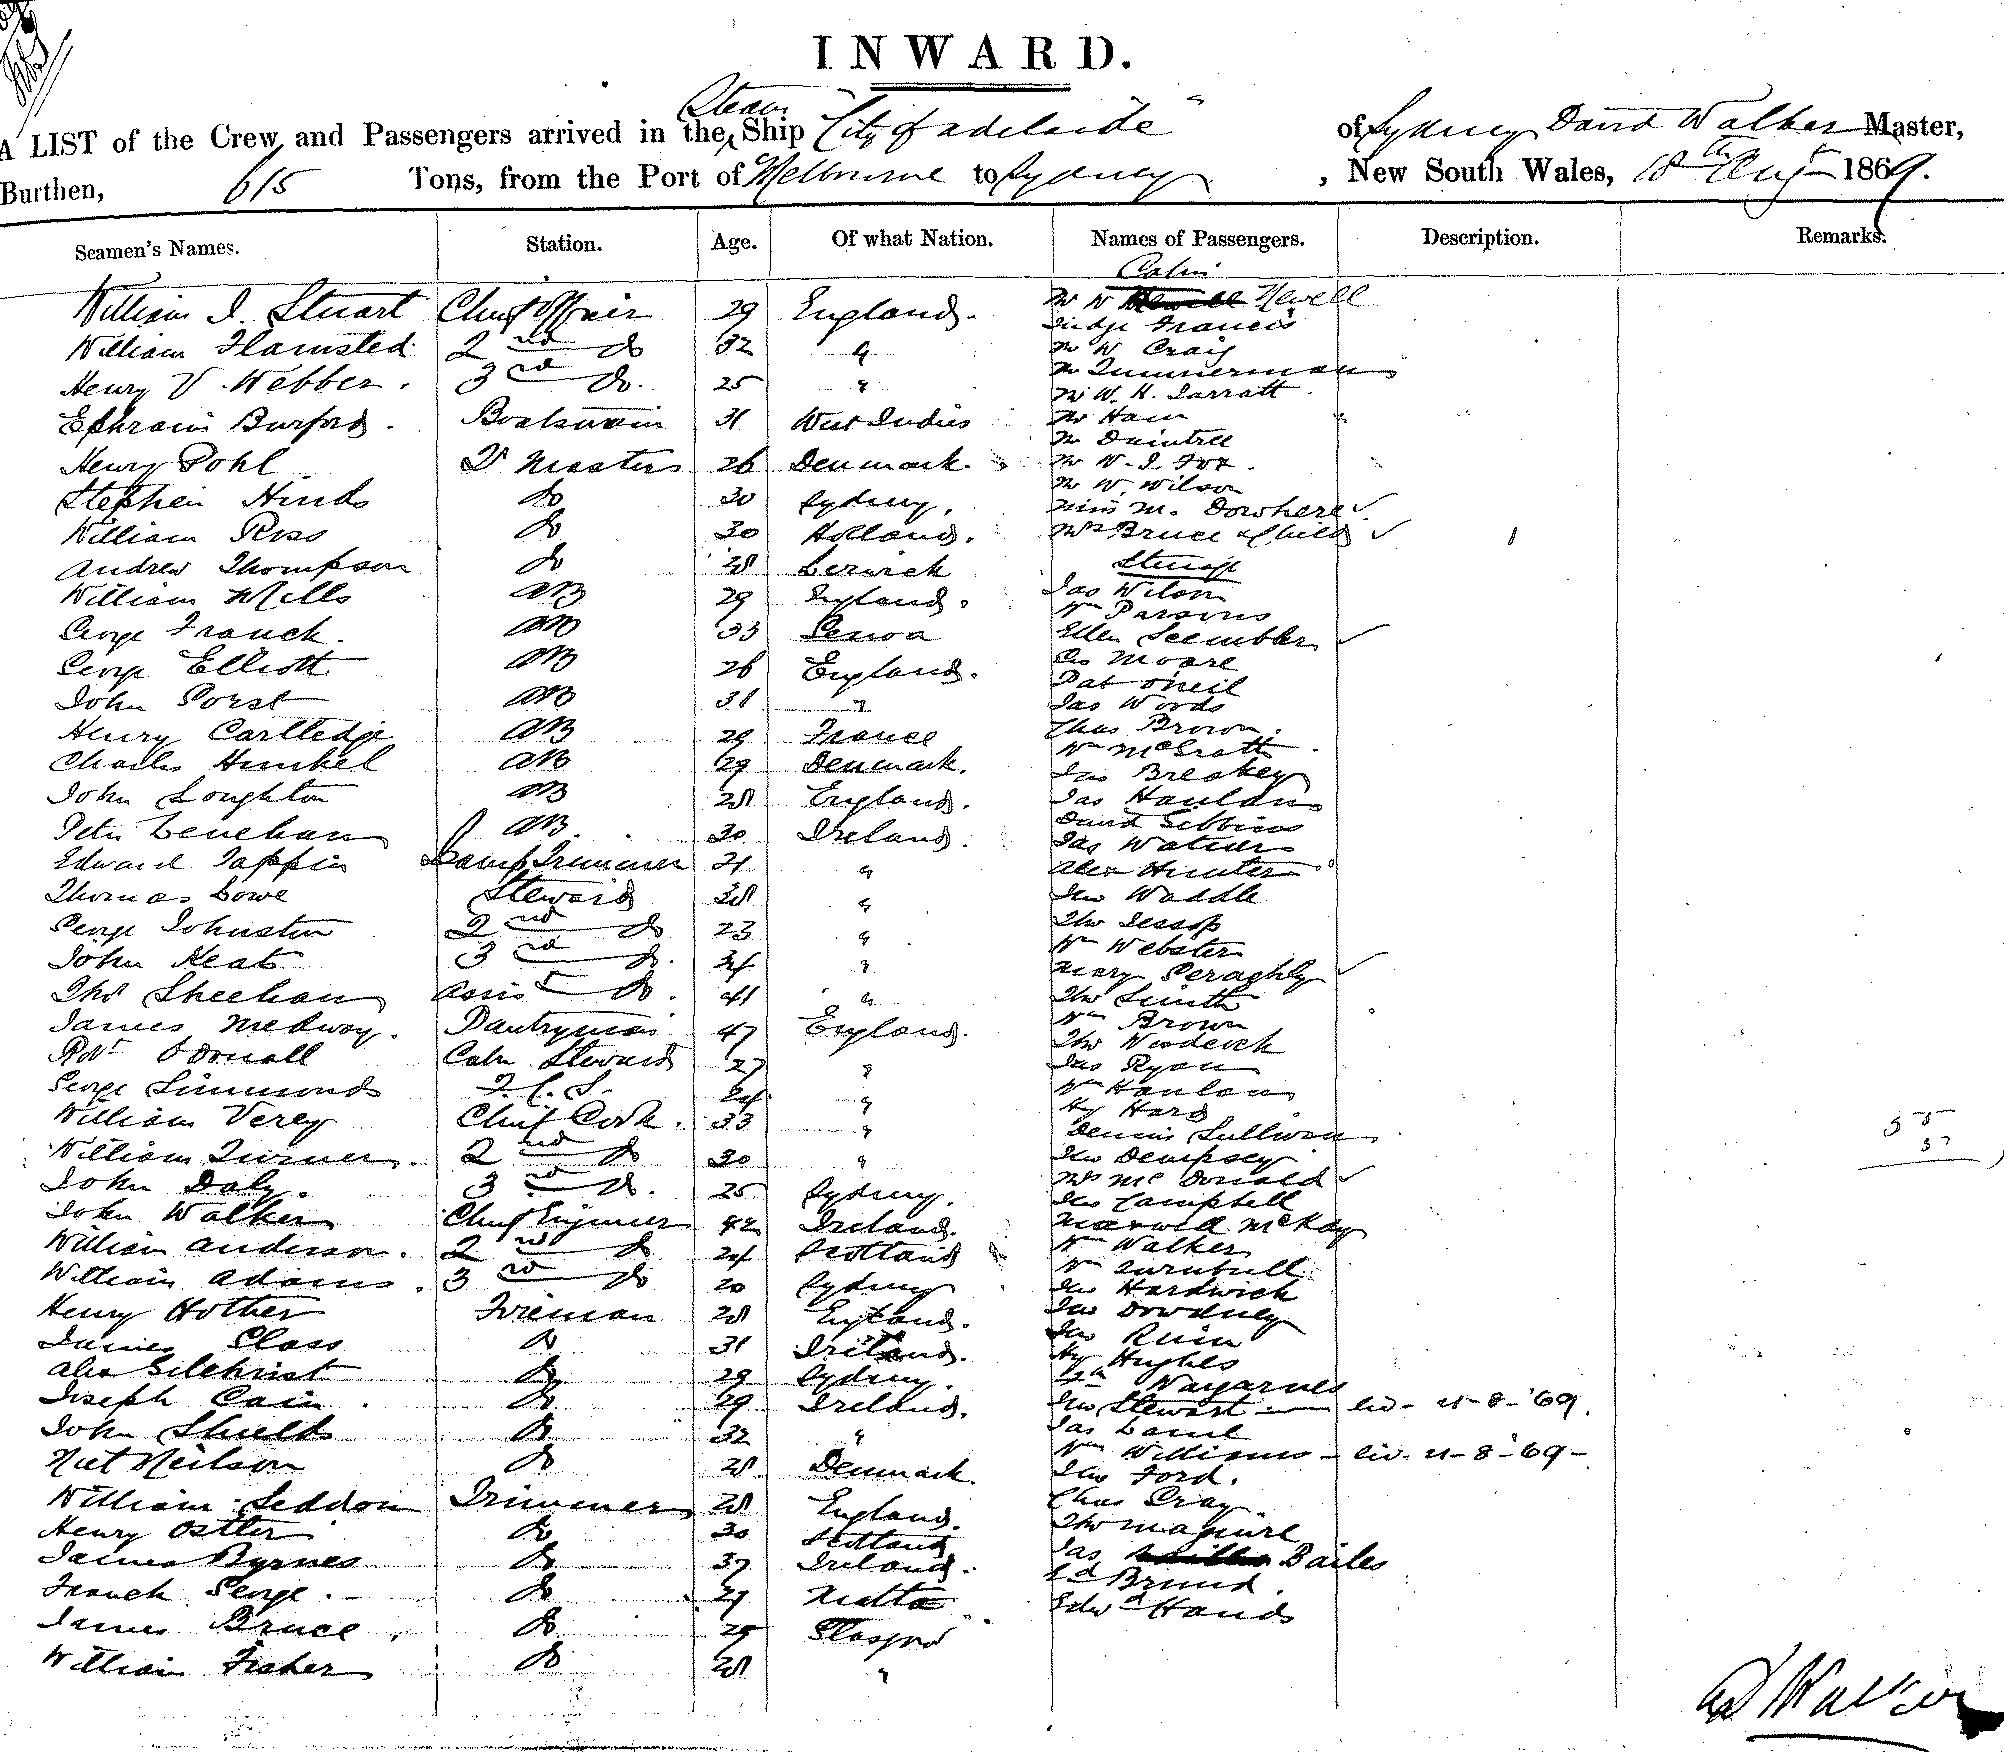 INWARD.
A LIST of the Crew and Passengers arrived in the Steam Ship "City of Adelaide" of Sydney David Walker Master,
Burthen, 615 Tons, from the Port of Melbourne to Sydney, New South Wales, 18th Augt 1869.
Seamen's Names. Station. Age. Of what Nation. Names of Passengers. Description. Remarks.
Cabin
William J. Stuart Chief Officer 29 England. Mr W Newell
Judge Francis
William Flamsted 2nd Do 32 " Mr W Craig
Henry V Webber. 3rd Do. 25 " Mr Zummerman
Mr W. H. Jarratt
Ephraim Burford. Boatswain 31 West Indies Mr Ham
Mr Daintree
Henry Pohl Qr Masters 26 Denmark. Mr W. J. Fox.
Stephen Hinds Do 30 Sydney. Mr W. Wilson
Miss M. Dowhere ✓
William Ross Do 30 Holland. Mrs Bruce & Child ✓
Andrew Thompson Do 28 Lerwick Steerage
William Mills AB 29 England. Jas Wilson
Wm Parsons
George Franck. AB 33 Genoa Ellen Seembler ✓
George Elliott AB 26 England. Geo Moore
Pat Oneil
John Porst AB 31 " Jas Woods
Henry Cartledge AB 29 France Chas Brown.
Charles Hunkel AB 29 Denmark. Wm McGratt
Jas Breakey
John Loughton AB 28 England. Jas Hanlon
Peter Lenehan AB. 30 Ireland. David Gibbins
Jas Waters
Edward Tappin Lamp Trimmer 21 " Alex Hunter
Thomas Lowe Steward 38 " Jno Waddle
George Johnston 2nd Do 23 " Tho Jessop
John Keats 3rd Do. 24 " Wm Webster
Mary Geraghty ✓
Thos Sheehan Assist Do. 41 " Tho Smith
James Medway. Pantryman 47 England. Wm Brown
Robt O'Donall Cabn Steward 27 " Tho Woodcock
Jas Ryan
George Simmonds F. C. S. 24 " Wm Hanlon
William Verey Chief Cook. 33 " Hy Hard
Dennis Sullivan
William Turner. 2nd Do 30 " Jno Dempsey
John Daly. 3rd Do. 25 Sydney. Mrs McDonald ✓
John Walker Chief Engineer 42 Ireland. Jno Campbell
McKay
William Anderson. 2nd Do 24 Scotland Wm Walker
William Adams. 3rd Do 20 Sydney Wm Turnbull
Jno Hardwick
Henry Hother Fireman 28 England. Jno Dowdney
James Glass Do 31 Ireland. Jno
Alex Gilchrist Do 29 Sydney. Hy Hughes
Joseph Cain. Do 29 Ireland. Jno Stewart — liv - 21-8-'69.
John Shields Do 32 " Jas
Wm Williams - liv. 21-8-69-
Niel Neilson Do 28 Denmark. Jno Ford.
William Seddon Trimmer 28 England. Chas Gray
Henry Ostler Do 30 Scotland Tho Maguire
James Byrnes Do 37 Ireland. Jas Bailes
Franck George. Do 27 Malta Brund.
James Bruce. Do 29 Glasgow Edwd Hands
William Fisher Do 28 "
55
37
D Walker